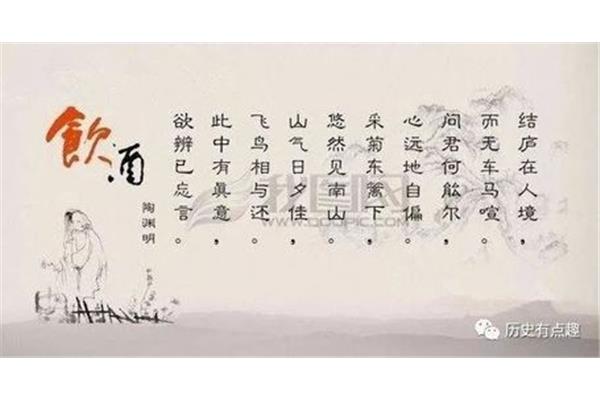 飲酒
陶渊明
结庐在人境，
而无车马喧。
问君何能尔，
心远地自偏。
采菊东篱下，
悠然见南山。
山气日夕佳，
飞鸟相与还。
此中有眞意，
欲辨已忘言。
历史有点趣